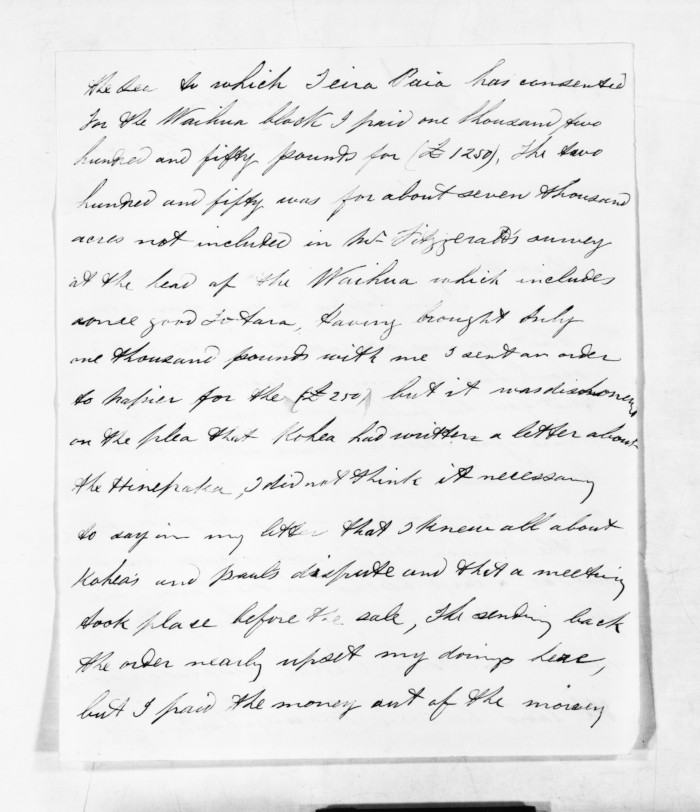 the sea to which Teira Paia has consented
For the Waihua block I paid one thousand two
hundred and fifty pounds for (£1250). The two
hundred and fifty was for about seven thousand
acres not included in Mr Fitzgerald's survey
at the head of the Waihua which includes
some good Totara, Having brought only
one thousand pounds with me I sent an order
to Napier for the (£250) but it was dishonored
on the plea that Kohea had written a letter about
the Hinepaka, I did not think it necessary
to say in my letter that I knew all about
Kohea's and Paul's dispute and that a meeting
took place before the sale, The sending back
the order nearly upset my doings here,
but I paid the money out of the money